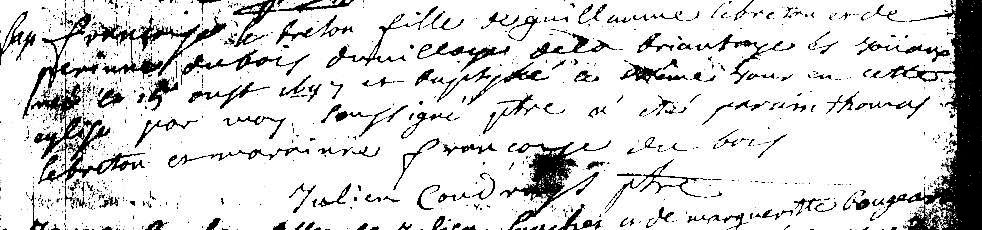 bap françoise le breton fille de guillaume lebreton et de
perinne dubois du village de la briantaye es
née le 15 aust et baptisée a même jour en cette
eglise par moy soussigné ptre a été parain thomas
lebreton et marainne françoise du bois
Julien ptre
et de margueritte bougeard